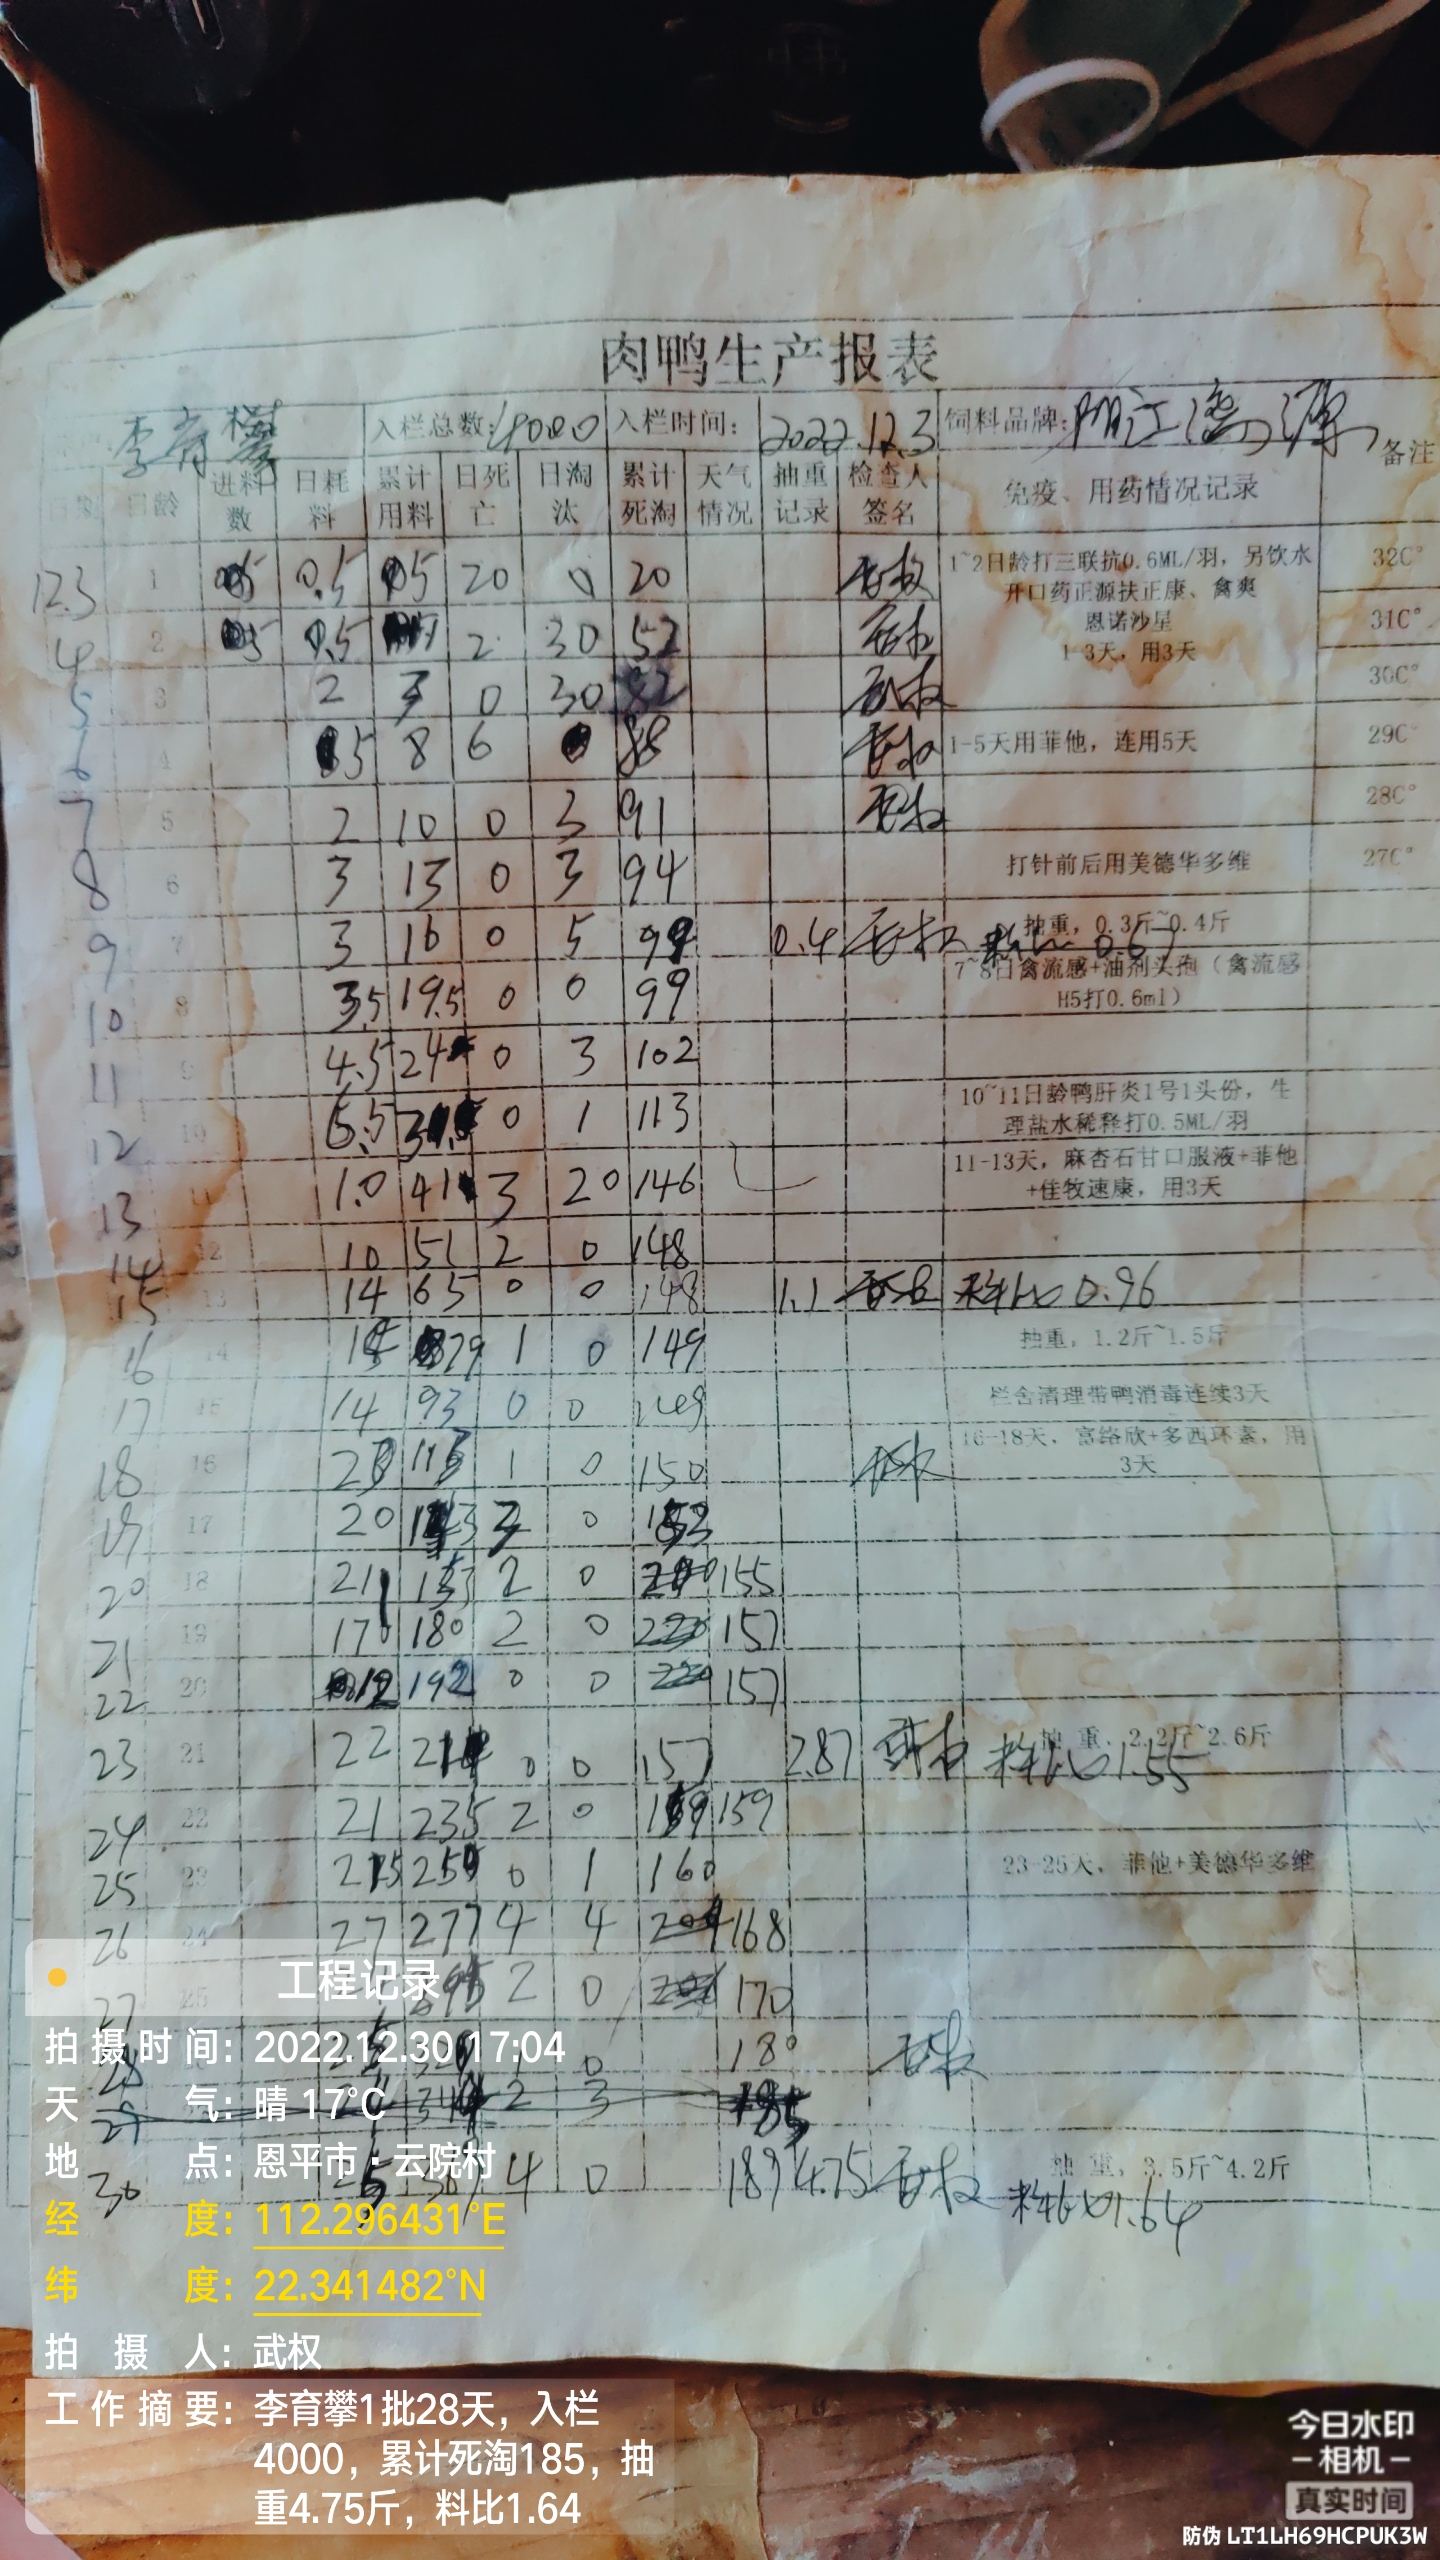 肉鸭生产报表
李育攀 入栏总数:4000 入栏时间: 2022.12.3 饲料品牌: 阳江 备注
日期 日龄 进料数 日耗料 累计用料 日死亡 日淘汰 累计死淘 天气情况 抽重记录 检查人签名 免疫、用药情况记录
12.3 1 0.5 20 0 20 1~2日龄打三联抗0.6ML/羽，另饮水开口药正源扶正康、禽爽 恩诺沙星 1-3天，用3天 32C°
4 2 0.5 2 30 52 31C°
5 3 2 3 0 30 82 30C°
6 4 5 8 6 88 1-5天用菲他，连用5天 29C°
7 5 2 10 0 3 91 28C°
8 6 3 13 0 3 94 打针前后用美德华多维 27C°
9 7 3 16 0 5 99 0.4 抽重，0.3斤~0.4斤 料比 0.67
10 8 3.5 19.5 0 0 99 7~8日禽流感+油剂头孢（禽流感H5打0.6ml）
11 9 4.5 24 0 3 102
12 10 6.5 0 1 113 10~11日龄鸭肝炎1号1头份，生理盐水稀释打0.5ML/羽
13 11 1.0 41 3 20 146 11-13天，麻杏石甘口服液+菲他+佳牧速康，用3天
14 12 10 51 2 0 148
15 13 14 65 0 0 148 1.1 料比 0.96
16 14 79 1 0 149 抽重，1.2斤~1.5斤
17 15 14 93 0 0 149 栏舍清理带鸭消毒连续3天
18 16 1 0 150 16-18天，富络欣+多西环素，用3天
19 17 20 0 153
20 18 21 2 0 155
21 19 17 180 2 0 157
22 20 12 192 0 0 157
23 21 22 214 0 0 157 2.87 抽 重，2.2斤~2.6斤 料比 1.55
24 22 21 235 2 0 159 159
25 23 0 1 160 23-25天，菲他+美德华多维
26 24 27 277 4 4 168
27 25 2 0 170
28 1 0 180
29 2 3 185
30 4 0 189 4.75 抽 重，3.5斤~4.2斤 料比 1.64
工程记录
拍摄时间: 2022.12.30 17:04
天气: 晴 17℃
地点: 恩平市·云院村
经度: 112.296431°E
纬度: 22.341482°N
拍摄人: 武权
工作摘要: 李育攀1批28天，入栏
4000，累计死淘185，抽
重4.75斤，料比1.64
今日水印
相机
真实时间
防伪 LT1LH69HCPUK3W